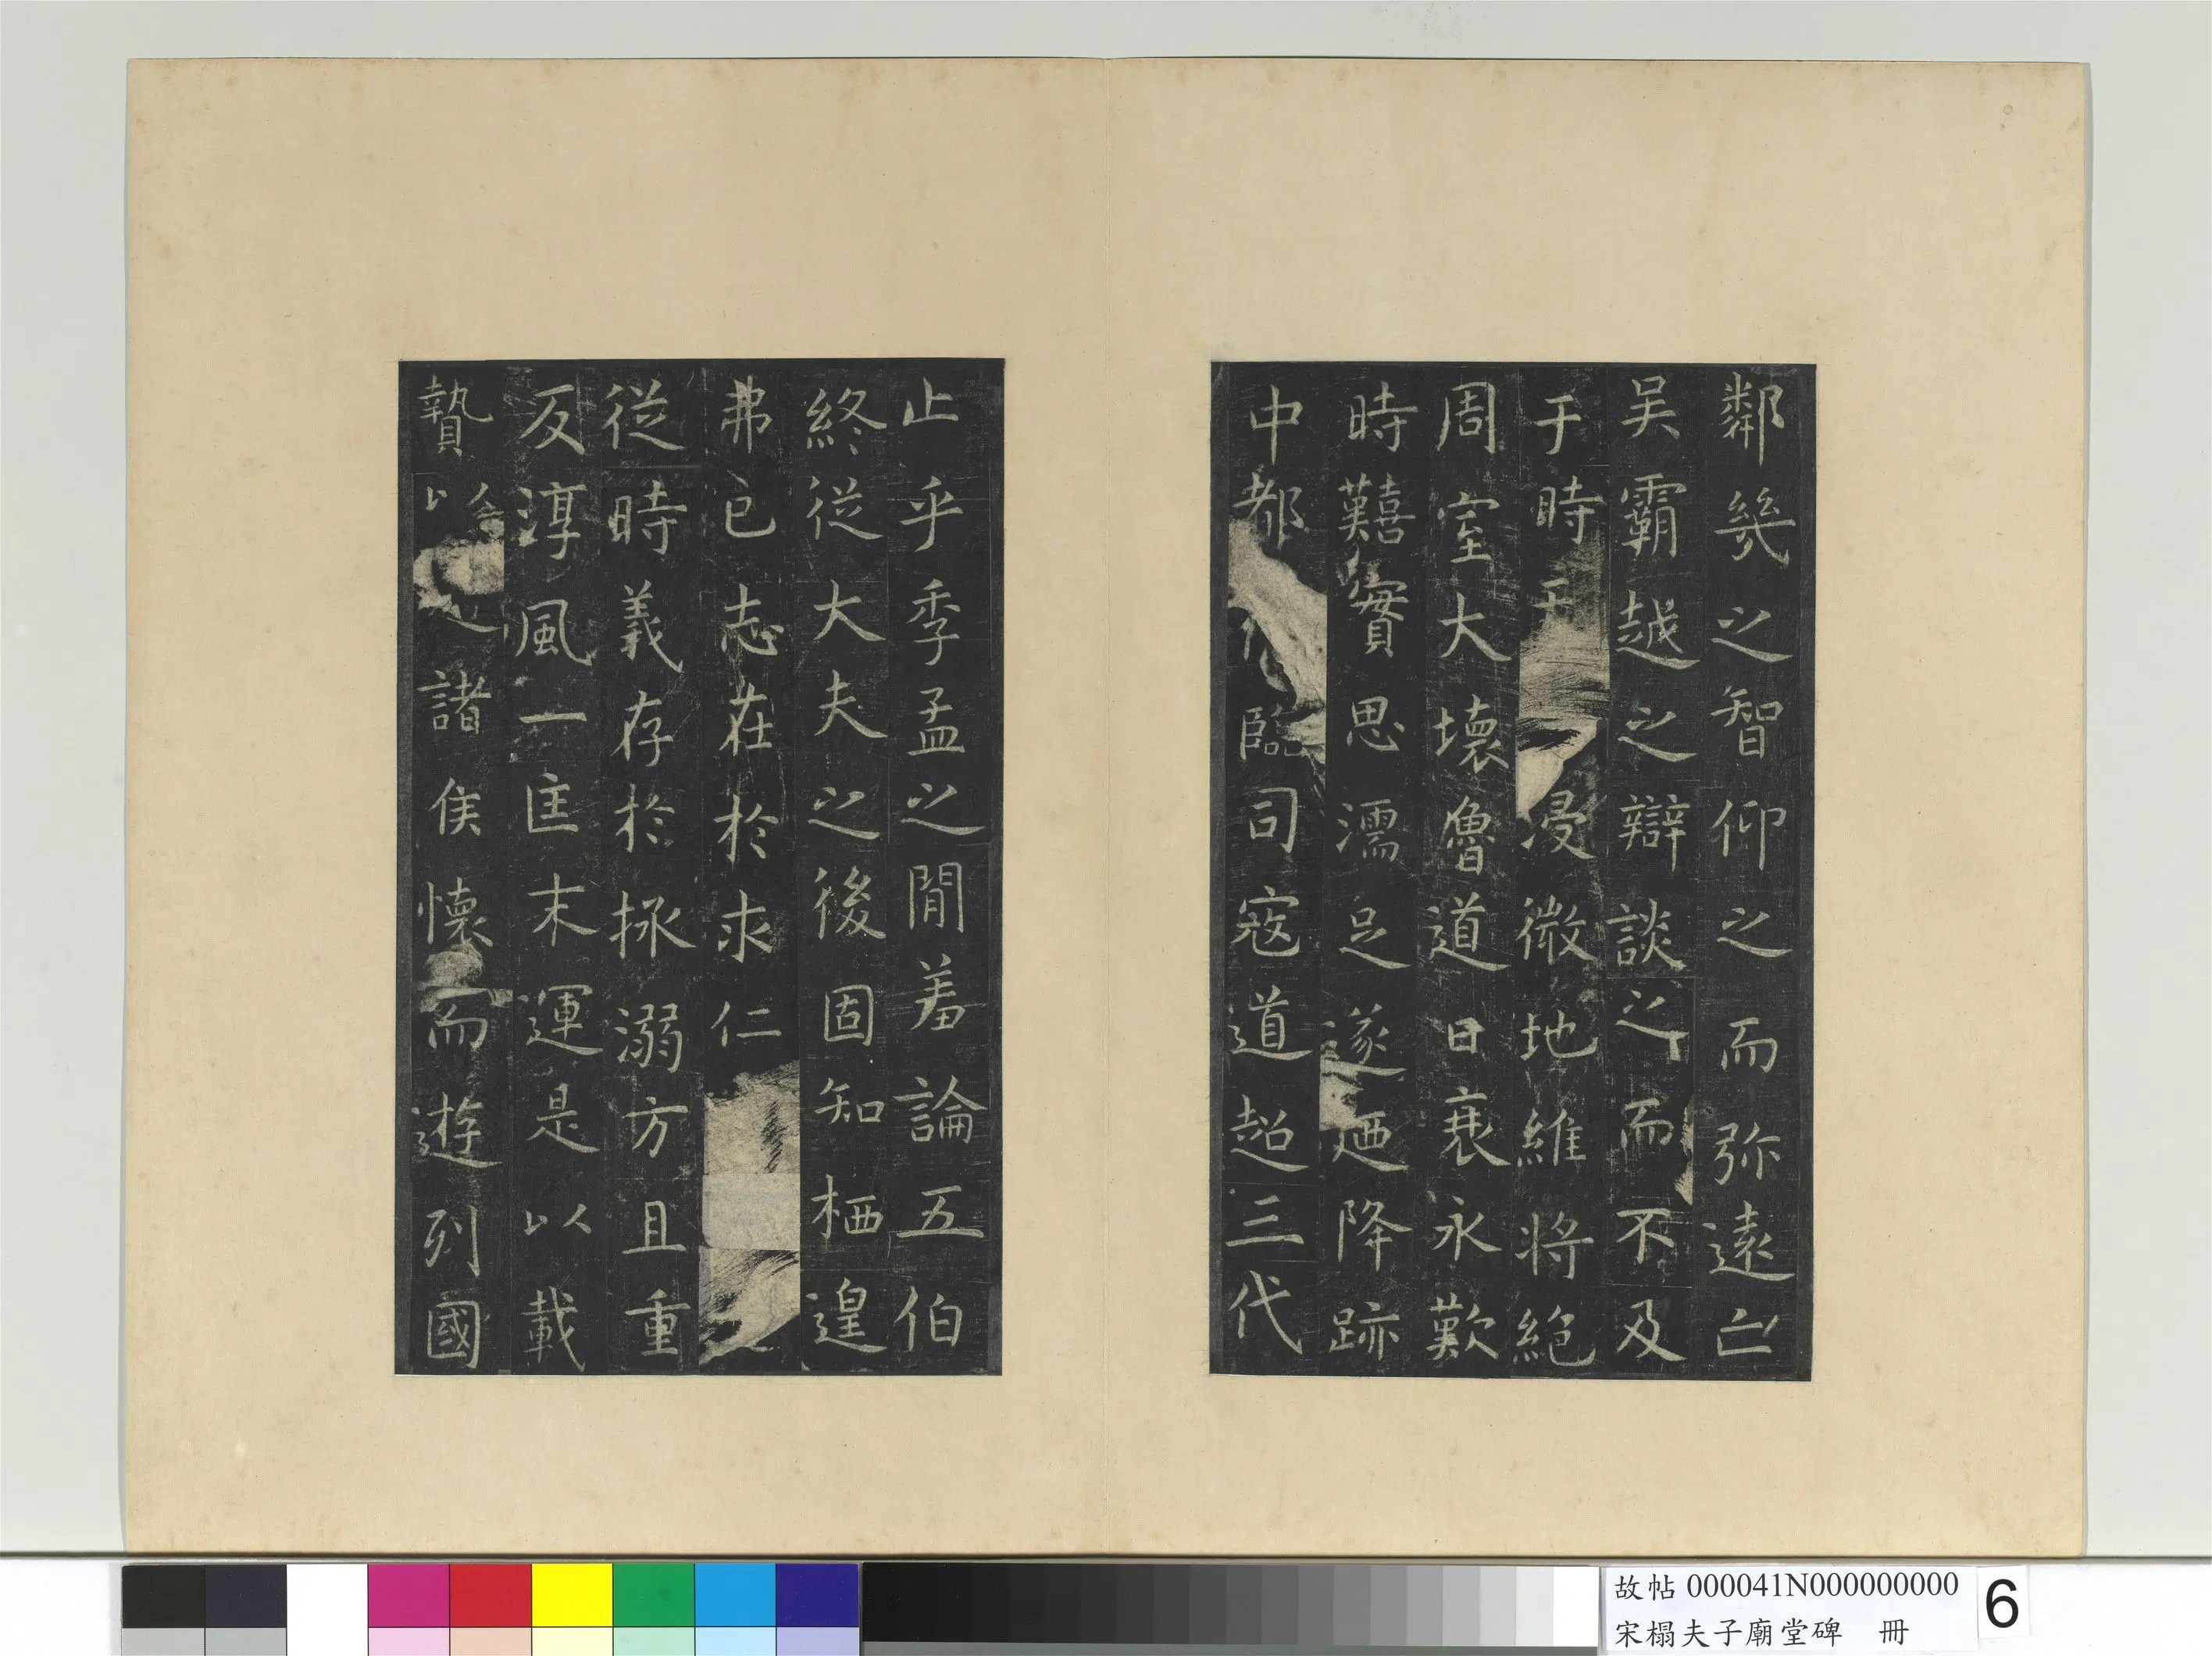 鄰幾之智仰之而弥遠亡
吴霸越之辯談之而不及
于時天浸微地維將絕
周室大壞魯道日衰永歎
時囏實思濡足遂迺降跡
中都俯臨司寇道超三代
止乎季孟之閒羞論五伯
終從大夫之後固知栖遑
弗已志在於求仁
從時義存於拯溺方且重
反淳風一匡末運是以載
贄以諸侯懷而遊列國
故帖 000041N000000000
宋榻夫子廟堂碑 冊
6